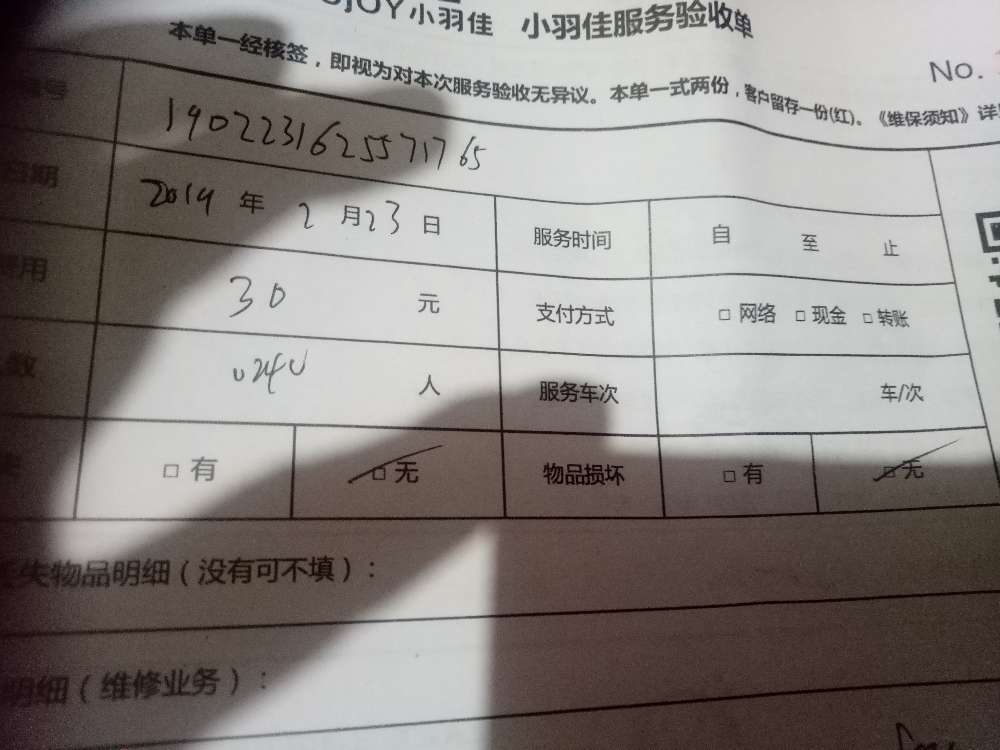 JOY小羽佳 小羽佳服务验收单
本单一经核签，即视为对本次服务验收无异议。本单一式两份，客户留存一份(红)。《维保须知》详
No.
号 1902231625571765
日期 2019 年 2 月 23 日 服务时间 自 至 止
费用 30 元 支付方式 □ 网络 □ 现金 □ 转账
数 人 服务车次 车/次
□ 有 □ 无 物品损坏 □ 有 □ 无
失物品明细（没有可不填）：
明细（维修业务）：